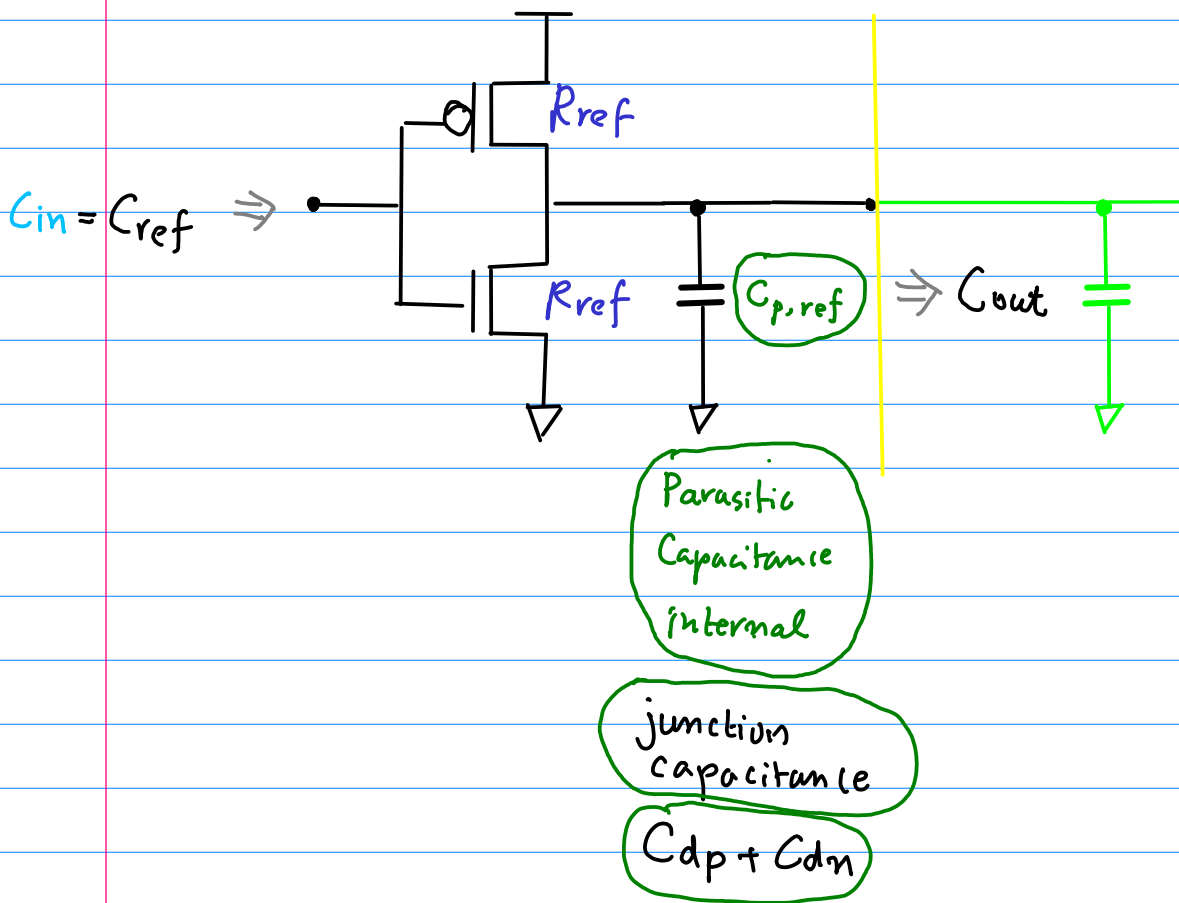 Rref
Cin = Cref ⇒
Rref
Cp,ref
⇒ Cout
Parasitic
Capacitance
internal
junction
capacitance
Cdp + Cdn